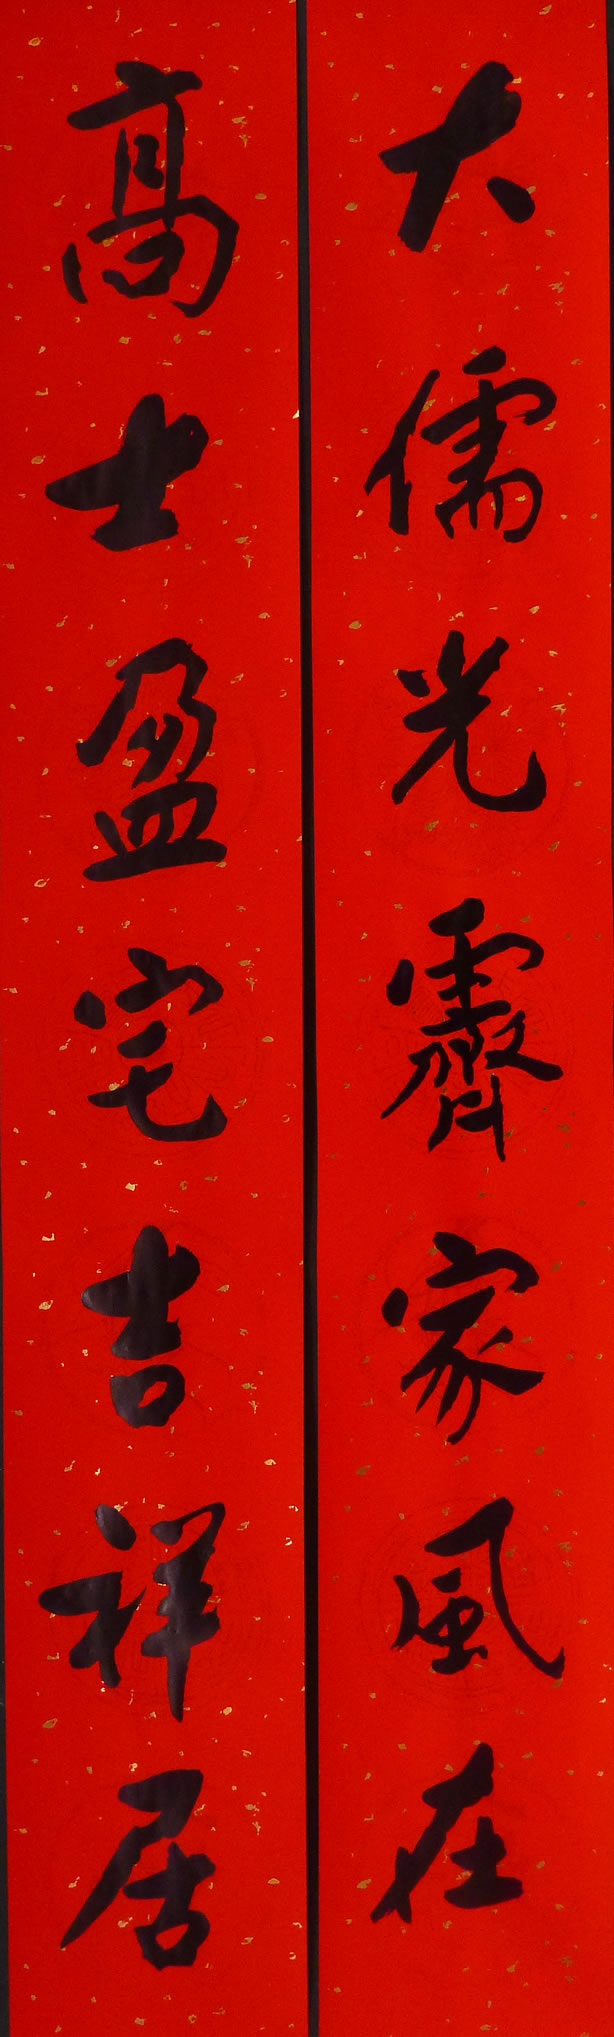 大儒光霽家風在
高士盈宅吉祥居